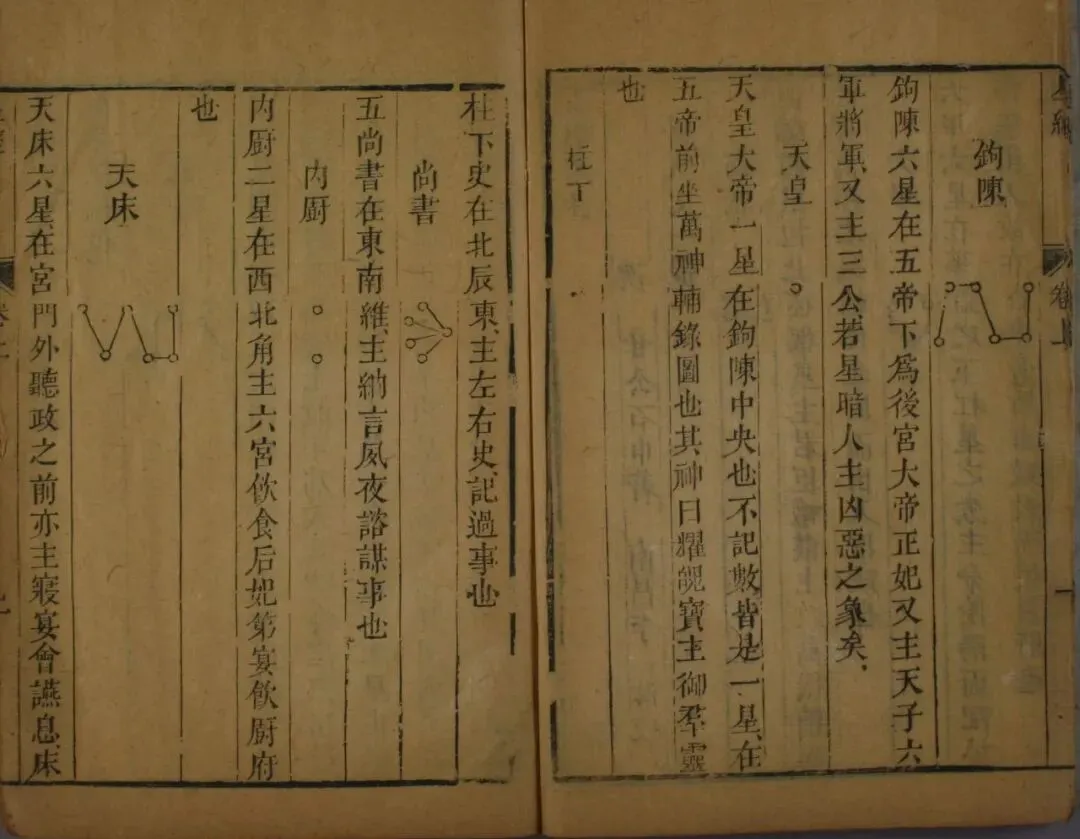 鉤陳
鉤陳六星在五帝下為後宮大帝正妃又主天子六
軍將軍又主三公若星暗人主凶惡之象矣
天皇
天皇大帝一星在鉤陳中央也不記數皆是一星在
五帝前坐萬神輔錄圖也其神曰耀魄寶主御羣靈
也
柱下
柱下史在北辰東主左右史記過事也
尚書
五尚書在東南維主納言夙夜諮謀事也
內厨
內厨二星在西北角主六宮飲食后妃第宴飲厨府
也
天床
天床六星在宮門外聽政之前亦主寢宴會讌息床